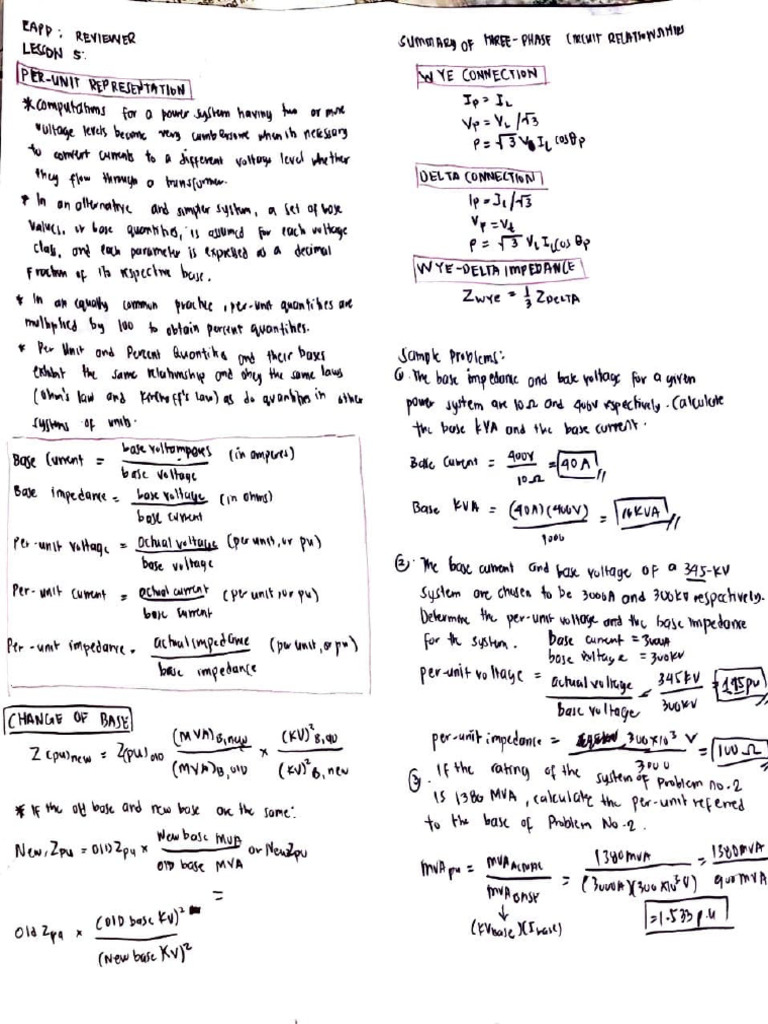 EAPD: REVIEWER
LESSON 5:
PER-UNIT REPRESENTATION
* Computations for a power system having two or more
voltage levels become very cumbersome when it is necessary
to convert currents to a different voltage level whether
they flow through a transformer.
* In an alternative and simpler system, a set of base
values, or base quantities, is assumed for each voltage
class, and each parameter is expressed as a decimal
fraction of its respective base.
* In an equally common practice, per-unit quantities are
multiplied by 100 to obtain percent quantities.
* Per Unit and Percent Quantities and their bases
exhibit the same relationship and obey the same laws
(Ohm's law and Kirchoff's Law) as do quantities in other
systems of units.
Base Current = base voltamperes / base voltage (in amperes)
Base impedance = base voltage / base current (in ohms)
Per-unit voltage = actual voltage / base voltage (per unit, or pu)
Per-unit current = actual current / base current (per unit, or pu)
Per-unit impedance = actual impedance / base impedance (per unit, or pu)
CHANGE OF BASE
Z(pu)new = Z(pu)old (MVA)B,new / (MVA)B,old × (KV)²B,old / (KV)²B,new
* If the old base and new base are the same:
New, Zpu = OLD Zpu × New base MVA / OLD base MVA or New Zpu
=
Old Zpu × (OLD base KV)² / (New base KV)²
SUMMARY OF THREE-PHASE CIRCUIT RELATIONSHIPS
WYE CONNECTION
Ip = IL
Vp = VL/√3
P = √3 VL IL cosθp
DELTA CONNECTION
Ip = IL/√3
Vp = VL
P = √3 VL IL cos θp
WYE-DELTA IMPEDANCE
ZWYE = 1/3 ZDELTA
Sample Problems:
① The base impedance and base voltage for a given
power system are 10Ω and 400V respectively. Calculate
the base KVA and the base current.
Base Current = 400V / 10Ω = 40A
Base KVA = (40A)(400V) / 1000 = 16KVA
② The base current and base voltage OF a 345-KV
system are chosen to be 3000A and 300KV respectively.
Determine the per-unit voltage and the base impedance
for the system.
base current = 3000A
base voltage = 300KV
per-unit voltage = actual voltage / base voltage = 345KV / 300KV = 1.15pu
per-unit impedance = 300×10³ V / 3000 = 100Ω
③. If the rating of the system of Problem no.2
is 1380 MVA, calculate the per-unit referred
to the base of Problem No.2.
MVApu = MVA ACTUAL / MVA BASE = 1380MVA / (3000A)(300×10³V) = 1380MVA / 900MVA
↓
(KVbase)(Ibase)
=1.533 p.u